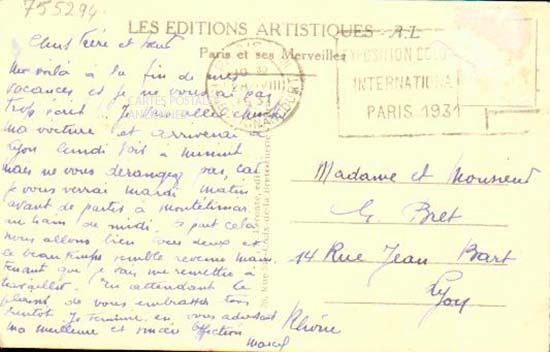 755294
LES EDITIONS ARTISTIQUES - A.L
Paris et ses Merveilles
EXPOSITION COLO
INTERNATIONA
PARIS 1931
Chers frère et
Me voilà à la fin de mes
vacances et je ne vous ai pas
trop écrit. Je suis allé chercher
ma voiture et arriverai à
Lyon lundi soit à minuit
mais ne vous derangez pas, car
je vous verrai mardi matin
avant de partir à Montélimar
au train de midi. à part cela
nous allons bien tous deux et
le beau temps semble revenu main
tenant que je vais me remettre à
travailler. En attendant le
plaisir de vous embrasser tous
bientot. Je termine en vous adressant
ma meilleure et sincère affection
Marcel
Madame et Monsieur
G. Bret
14 Rue Jean Bart
Lyon
Rhône
CARTES POSTALES